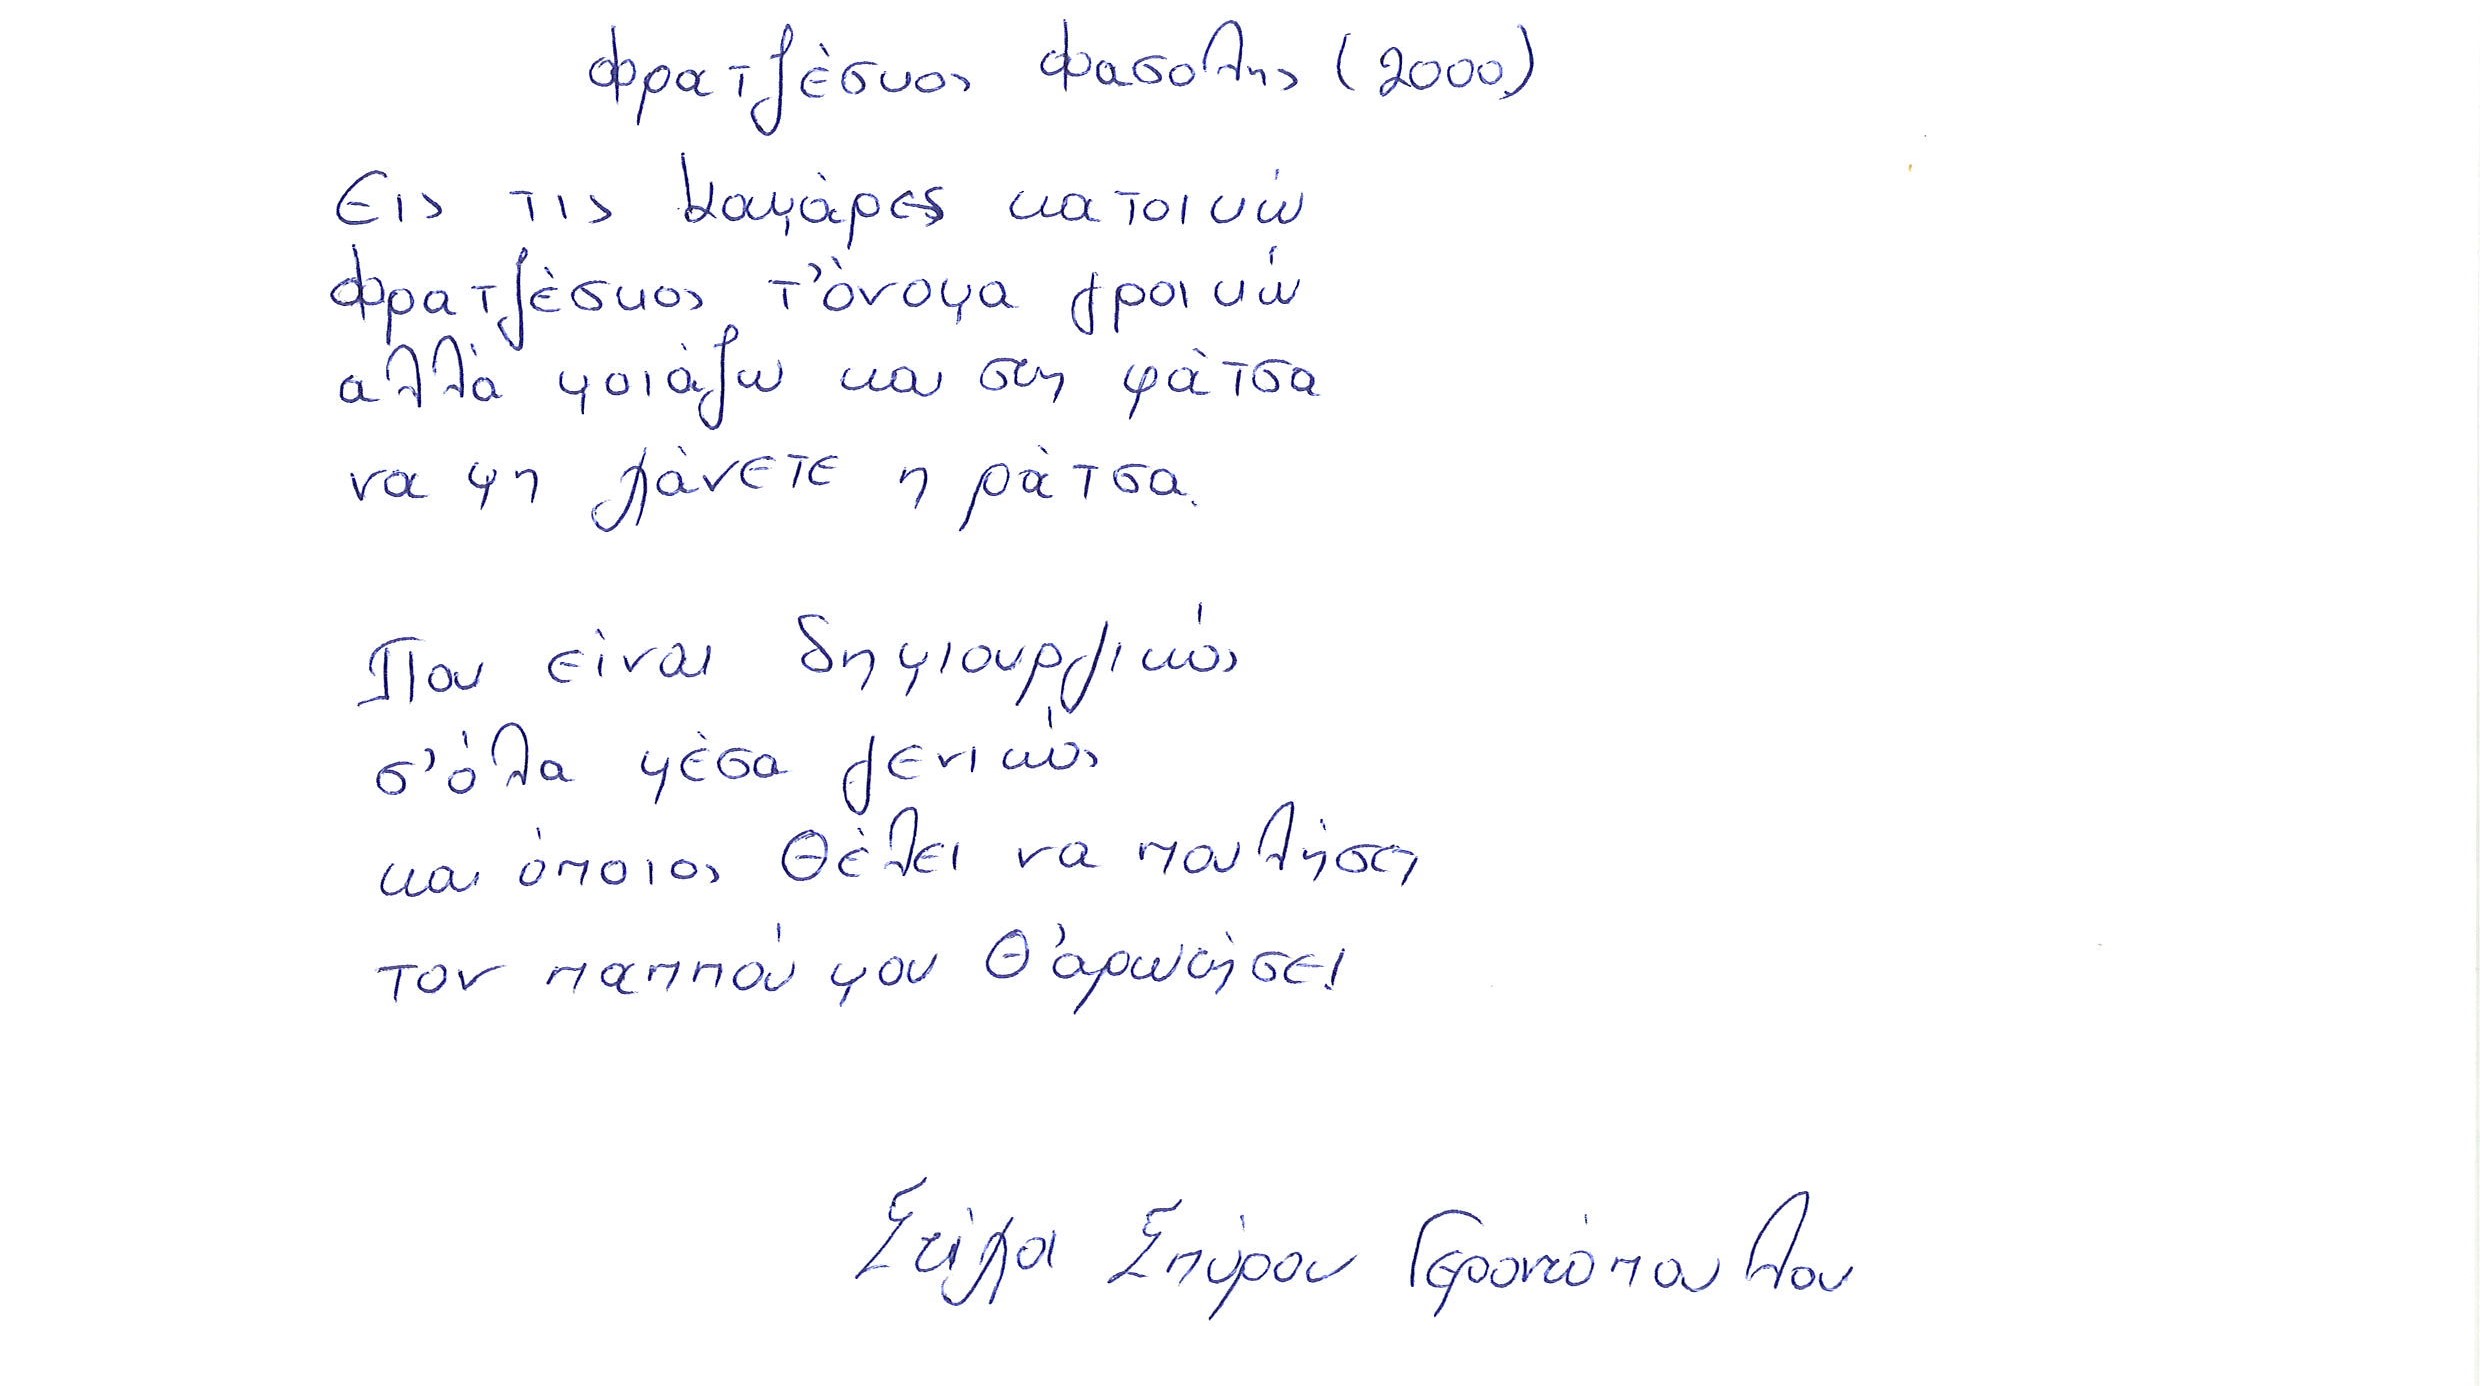 Φρατζέσκος Φασολής (2000)
Εις τις Καμάρες κατοικώ
Φρατζέσκος τ'όνομα γροικώ
αλλά μοιάζω και στη φάτσα
να μη χάνετε η ράτσα.
Που είναι δημιουργικός
σ'όλα μέσα γενικώς
και όποιος θέλει να πουλήση
τον παππού μου θ'αρωτήσει
Σπύρου Γεροντόπουλου